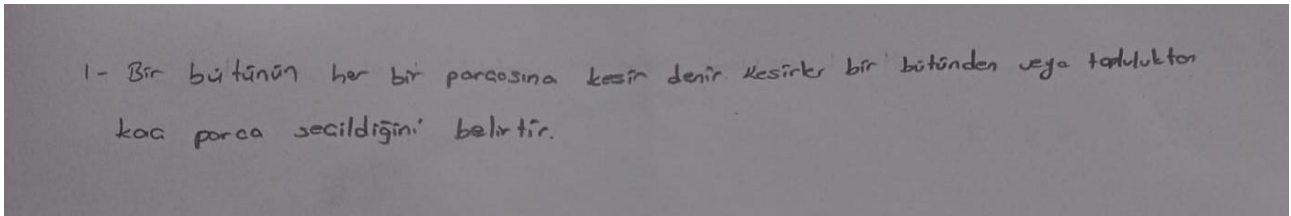 1- Bir bütünün her bir parçasına kesir denir kesirler bir bütünden veya topluluktan
kaç parça seçildiğini belirtir.